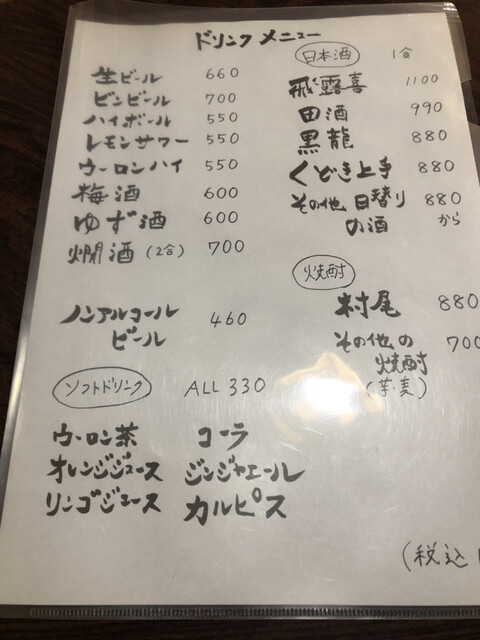 ドリンクメニュー
生ビール 660
ビンビール 700
ハイボール 550
レモンサワー 550
ウーロンハイ 550
梅酒 600
ゆず酒 600
燗酒(2合) 700
ノンアルコール
ビール 460
ソフトドリンク ALL 330
ウーロン茶 コーラ
オレンジジュース ジンジャエール
リンゴジュース カルピス
日本酒 1合
飛露喜 1100
田酒 990
黒龍 880
くどき上手 880
その他 日替り 880
の酒 から
焼酎
村尾 880
その他の 700
焼酎
(芋・麦)
(税込